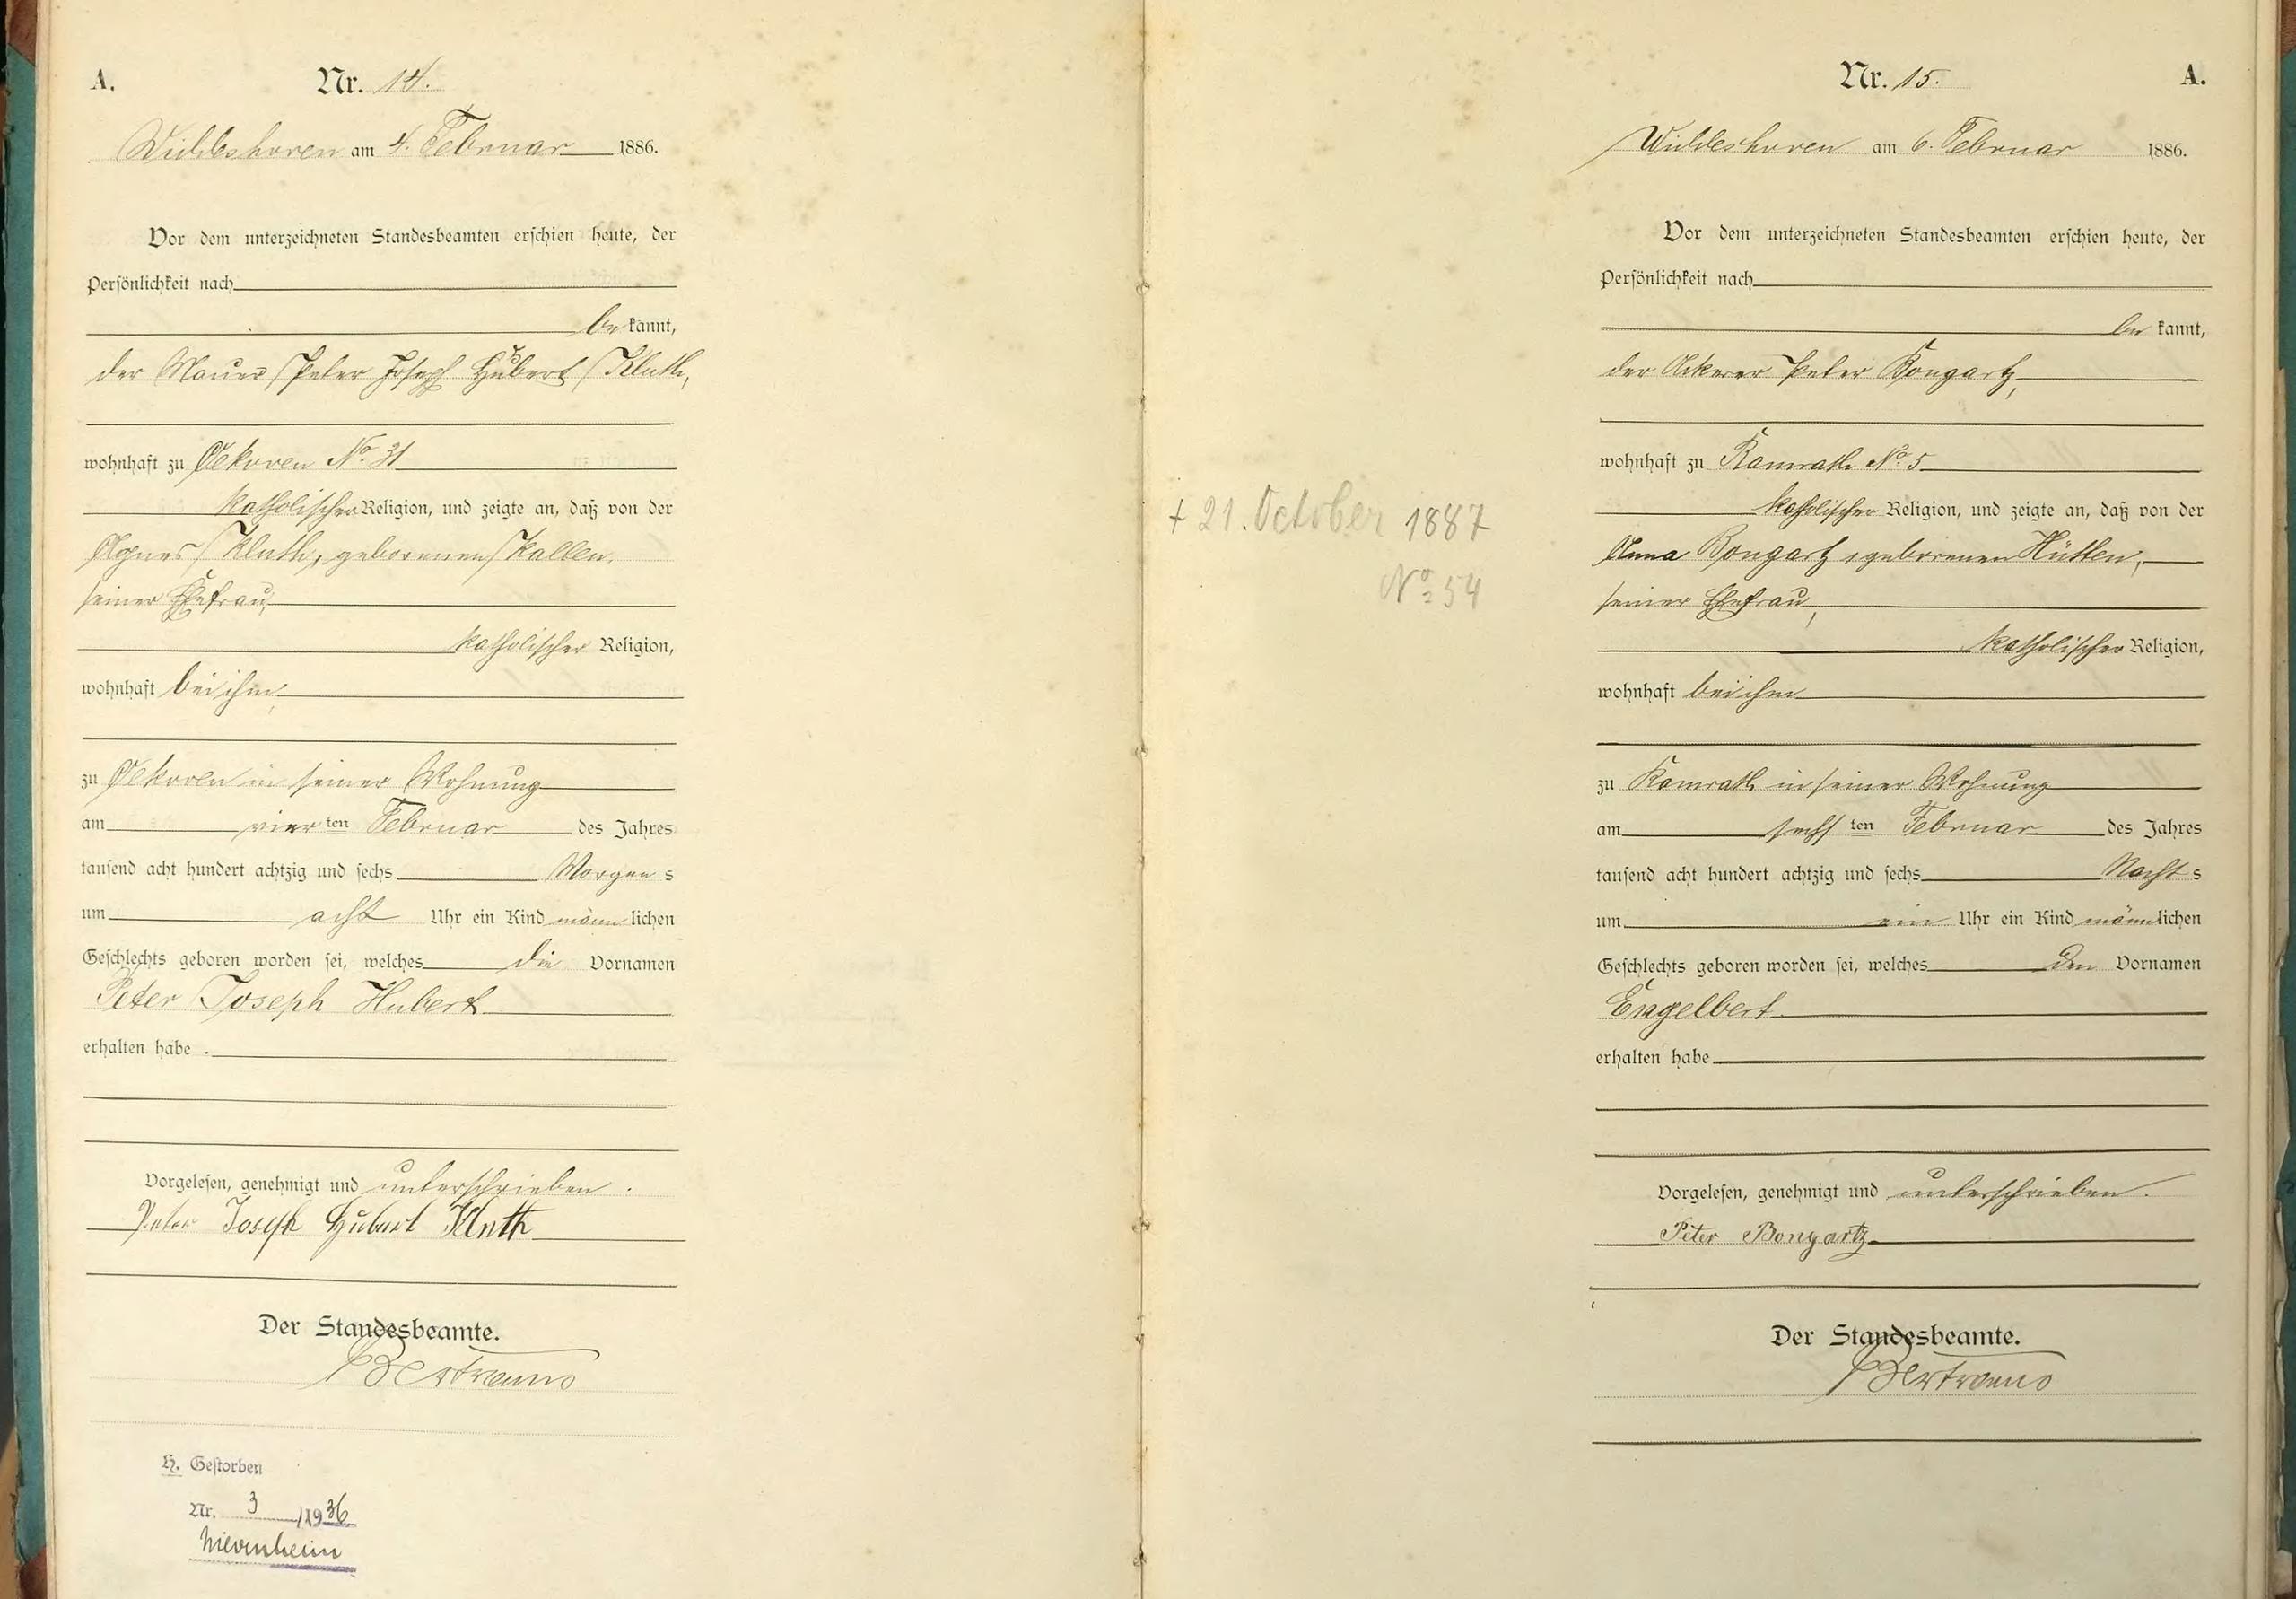 A. Nr. 14.
Widdeshoven am 4. Februar 1886.
Vor dem unterzeichneten Standesbeamten erschien heute, der
Persönlichkeit nach
be kannt,
der Maurer Peter Joseph Hubert Kluth,
wohnhaft zu Oekoven No. 31
katholischer Religion, und zeigte an, daß von der
Agnes Kluth, geborenen Kallen,
seiner Ehefrau,
katholischer Religion,
wohnhaft bei ihm,
zu Oekoven in seiner Wohnung
am vier ten Februar des Jahres
tausend acht hundert achtzig und sechs Morgens
um acht Uhr ein Kind männlichen
Geschlechts geboren worden sei, welches die Vornamen
Peter Joseph Hubert
erhalten habe.
Vorgelesen, genehmigt und unterschrieben.
Peter Joseph Hubert Kluth
Der Standesbeamte.
H. Gestorben
Nr. 3 /1936
Nievenheim
† 21. October 1887
No 54
Nr. 15. A.
Widdeshoven am 6. Februar 1886.
Vor dem unterzeichneten Standesbeamten erschien heute, der
Persönlichkeit nach
be kannt,
der Ackerer Peter Bongartz,
wohnhaft zu Ramrath No. 5
katholischer Religion, und zeigte an, daß von der
Anna Bongartz, geborenen Hütten,
seiner Ehefrau,
katholischer Religion,
wohnhaft bei ihm
zu Ramrath in seiner Wohnung
am sechs ten Februar des Jahres
tausend acht hundert achtzig und sechs Nachts
um ein Uhr ein Kind männlichen
Geschlechts geboren worden sei, welches den Vornamen
Engelbert
erhalten habe
Vorgelesen, genehmigt und unterschrieben.
Peter Bongartz
Der Standesbeamte.